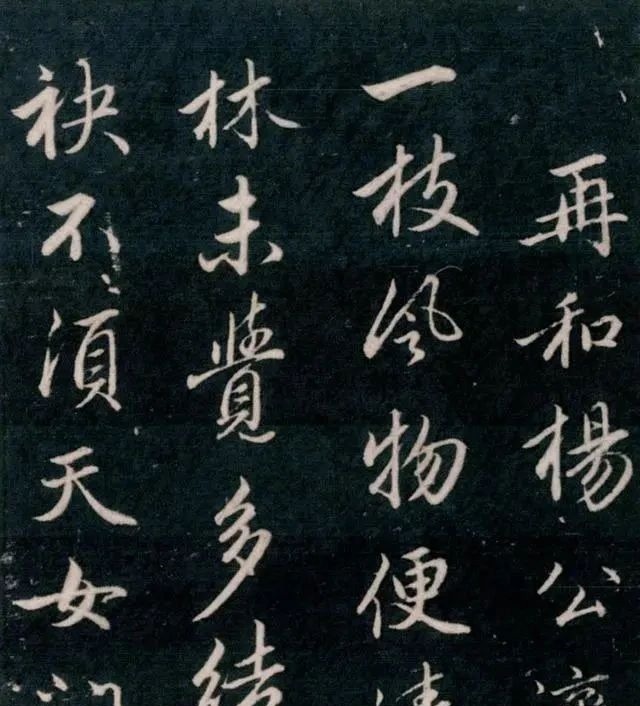 再和楊公濟
一枝風物便清
林未覺多結
袂不須天女問